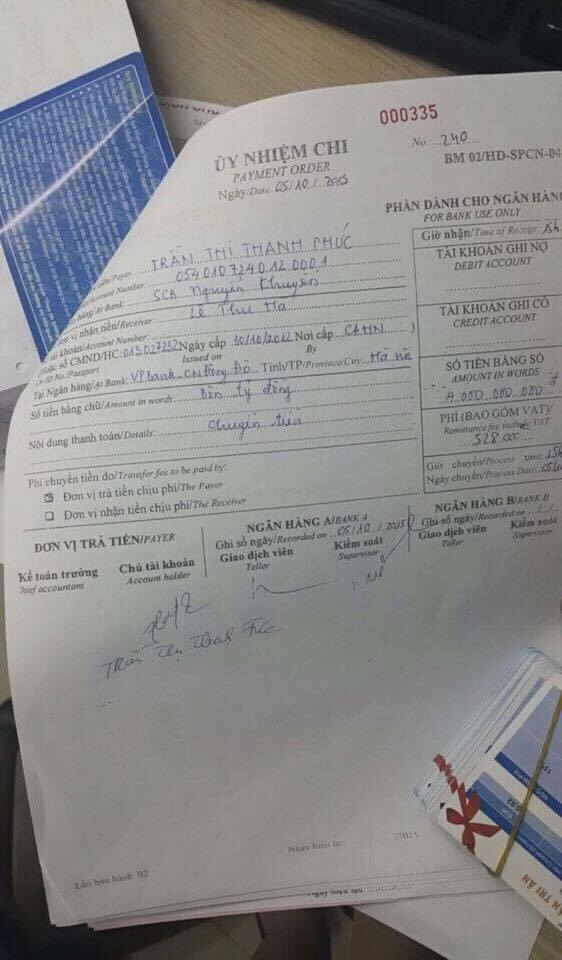 000335
ỦY NHIỆM CHI
PAYMENT ORDER
Ngày/Date 05/10/2015
No: 240
BM 02/HD-SPCN-04
PHẦN DÀNH CHO NGÂN HÀNG
FOR BANK USE ONLY
Giờ nhận/Time of Receipt: 15h
TÀI KHOẢN GHI NỢ
DEBIT ACCOUNT
TÀI KHOẢN GHI CÓ
CREDIT ACCOUNT
SỐ TIỀN BẰNG SỐ
AMOUNT IN WORDS
4.000.000.000 đ
PHÍ (BAO GỒM VAT)
Remittance fee include VAT
528.000
Giờ chuyển/Process time: 15h
Ngày chuyển/Process Date: 05/10
tiền/Payer: TRẦN THỊ THANH PHÚC
Account Number: 0540107240120001
hàng/At Bank: SCB Nguyễn Khuyến
Đơn vị nhận tiền/Receiver: Lê Thu Hà
tài khoản/Account Number:
Hoặc số CMND/HC: 013027232 Ngày cấp 30/10/2012 Nơi cấp CAHN )
Or ID No./Passport Issued on By
Tại Ngân hàng/At Bank: VPbank CN Đông Đô Tỉnh/TP/Province/City: Hà nội
Số tiền bằng chữ/Amount in words: Bốn tỷ đồng
Nội dung thanh toán/Details: Chuyển tiền
Phí chuyển tiền do/Transfer fee to be paid by:
Đơn vị trả tiền chịu phí/The Payer
Đơn vị nhận tiền chịu phí/The Receiver
ĐƠN VỊ TRẢ TIỀN/PAYER
Kế toán trưởng Chủ tài khoản
Chief accountant Account holder
NGÂN HÀNG A/BANK A
Ghi sổ ngày/Recorded on 05/10/2015
Giao dịch viên Kiểm soát
Teller Supervisor
NGÂN HÀNG B/BANK B
Ghi sổ ngày/Recorded on
Giao dịch viên Kiểm soát
Teller Supervisor
Trần Thị Thanh Phúc
Lần ban hành: 03
Ngày hiệu lực: / /2015
TRI ÂN